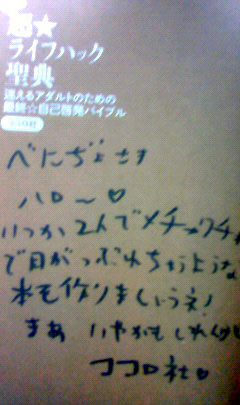 超★
ライフハック
聖典
迷えるアダルトのための
最終☆自己啓発バイブル
ココロ社
べにぢょさま
ハロ〜♡
いつか2人でメチャクチャ
で目がつぶれちゃうような
本を作りましょうネ!
まあ いやかもしれんけど
ココロ社